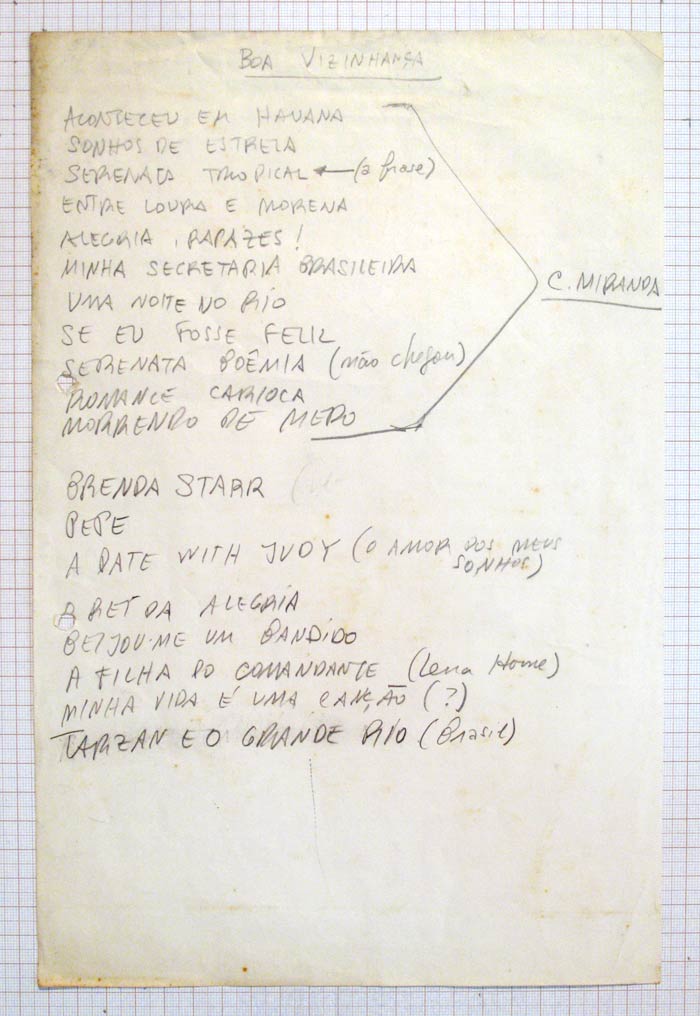 BOA VIZINHANÇA
ACONTECEU EM HAVANA
SONHOS DE ESTRELA
SERENATA TROPICAL ← (a frase)
ENTRE LOURA E MORENA
ALEGRIA, RAPAZES!
MINHA SECRETARIA BRASILEIRA
C. MIRANDA
UMA NOITE NO RIO
SE EU FOSSE FELIZ
SERENATA BOÊMIA (não chegou)
ROMANCE CARIOCA
MORRENDO DE MEDO
BRENDA STARR
PEPE
A DATE WITH JUDY (O AMOR DOS MEUS
SONHOS)
O REI DA ALEGRIA
BEIJOU-ME UM BANDIDO
A FILHA DO COMANDANTE (Lena Horne)
MINHA VIDA É UMA CANÇÃO (?)
TARZAN E O GRANDE RIO (Brasil)